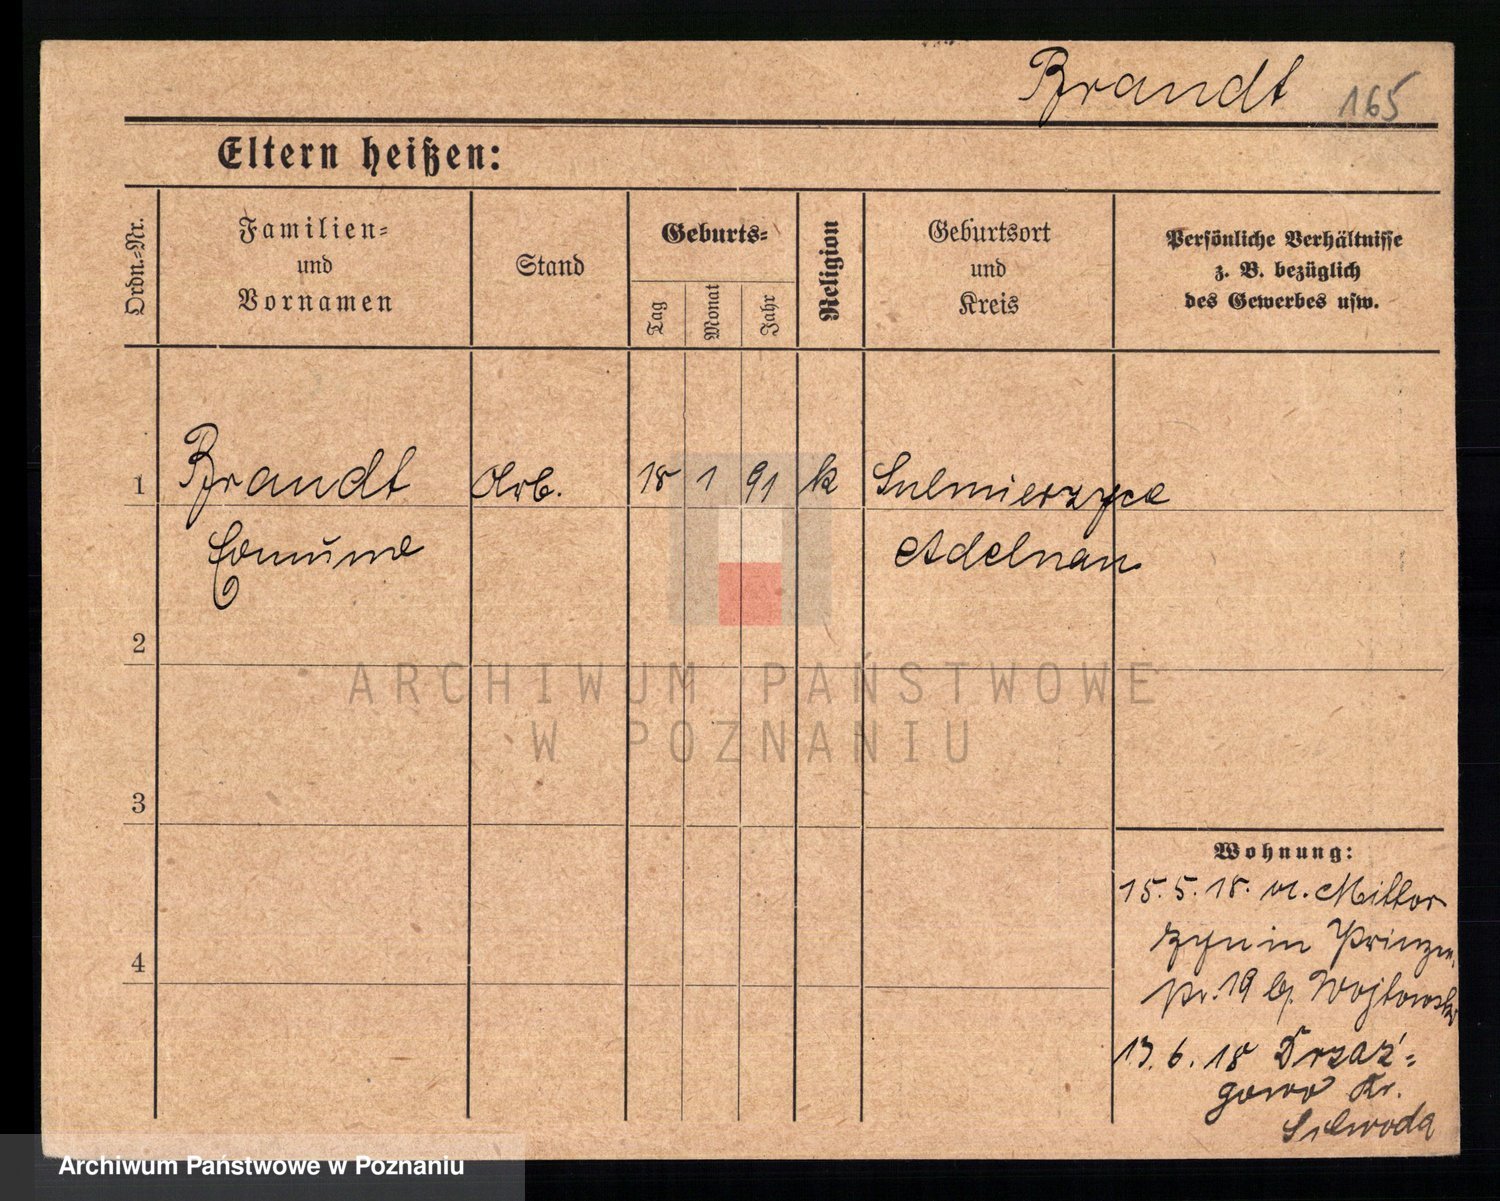 Brandt 165
Eltern heißen:
Ordn.-Nr.
Familien- und Vornamen
Stand
Geburts-
Tag
Monat
Jahr
Religion
Geburtsort und Kreis
Persönliche Verhältnisse
z. B. bezüglich
des Gewerbes usw.
1 Brandt Arb. 18 1 91 k Sulmierzyce
Adelnau
2
3
4
Wohnung:
15. 5. 18. v.
in Prinzen
19 b. Wojtowski
6. 18 Drzaz-
gowo Kr.
Schroda
ARCHIWUM PAŃSTWOWE
W POZNANIU
Archiwum Państwowe w Poznaniu